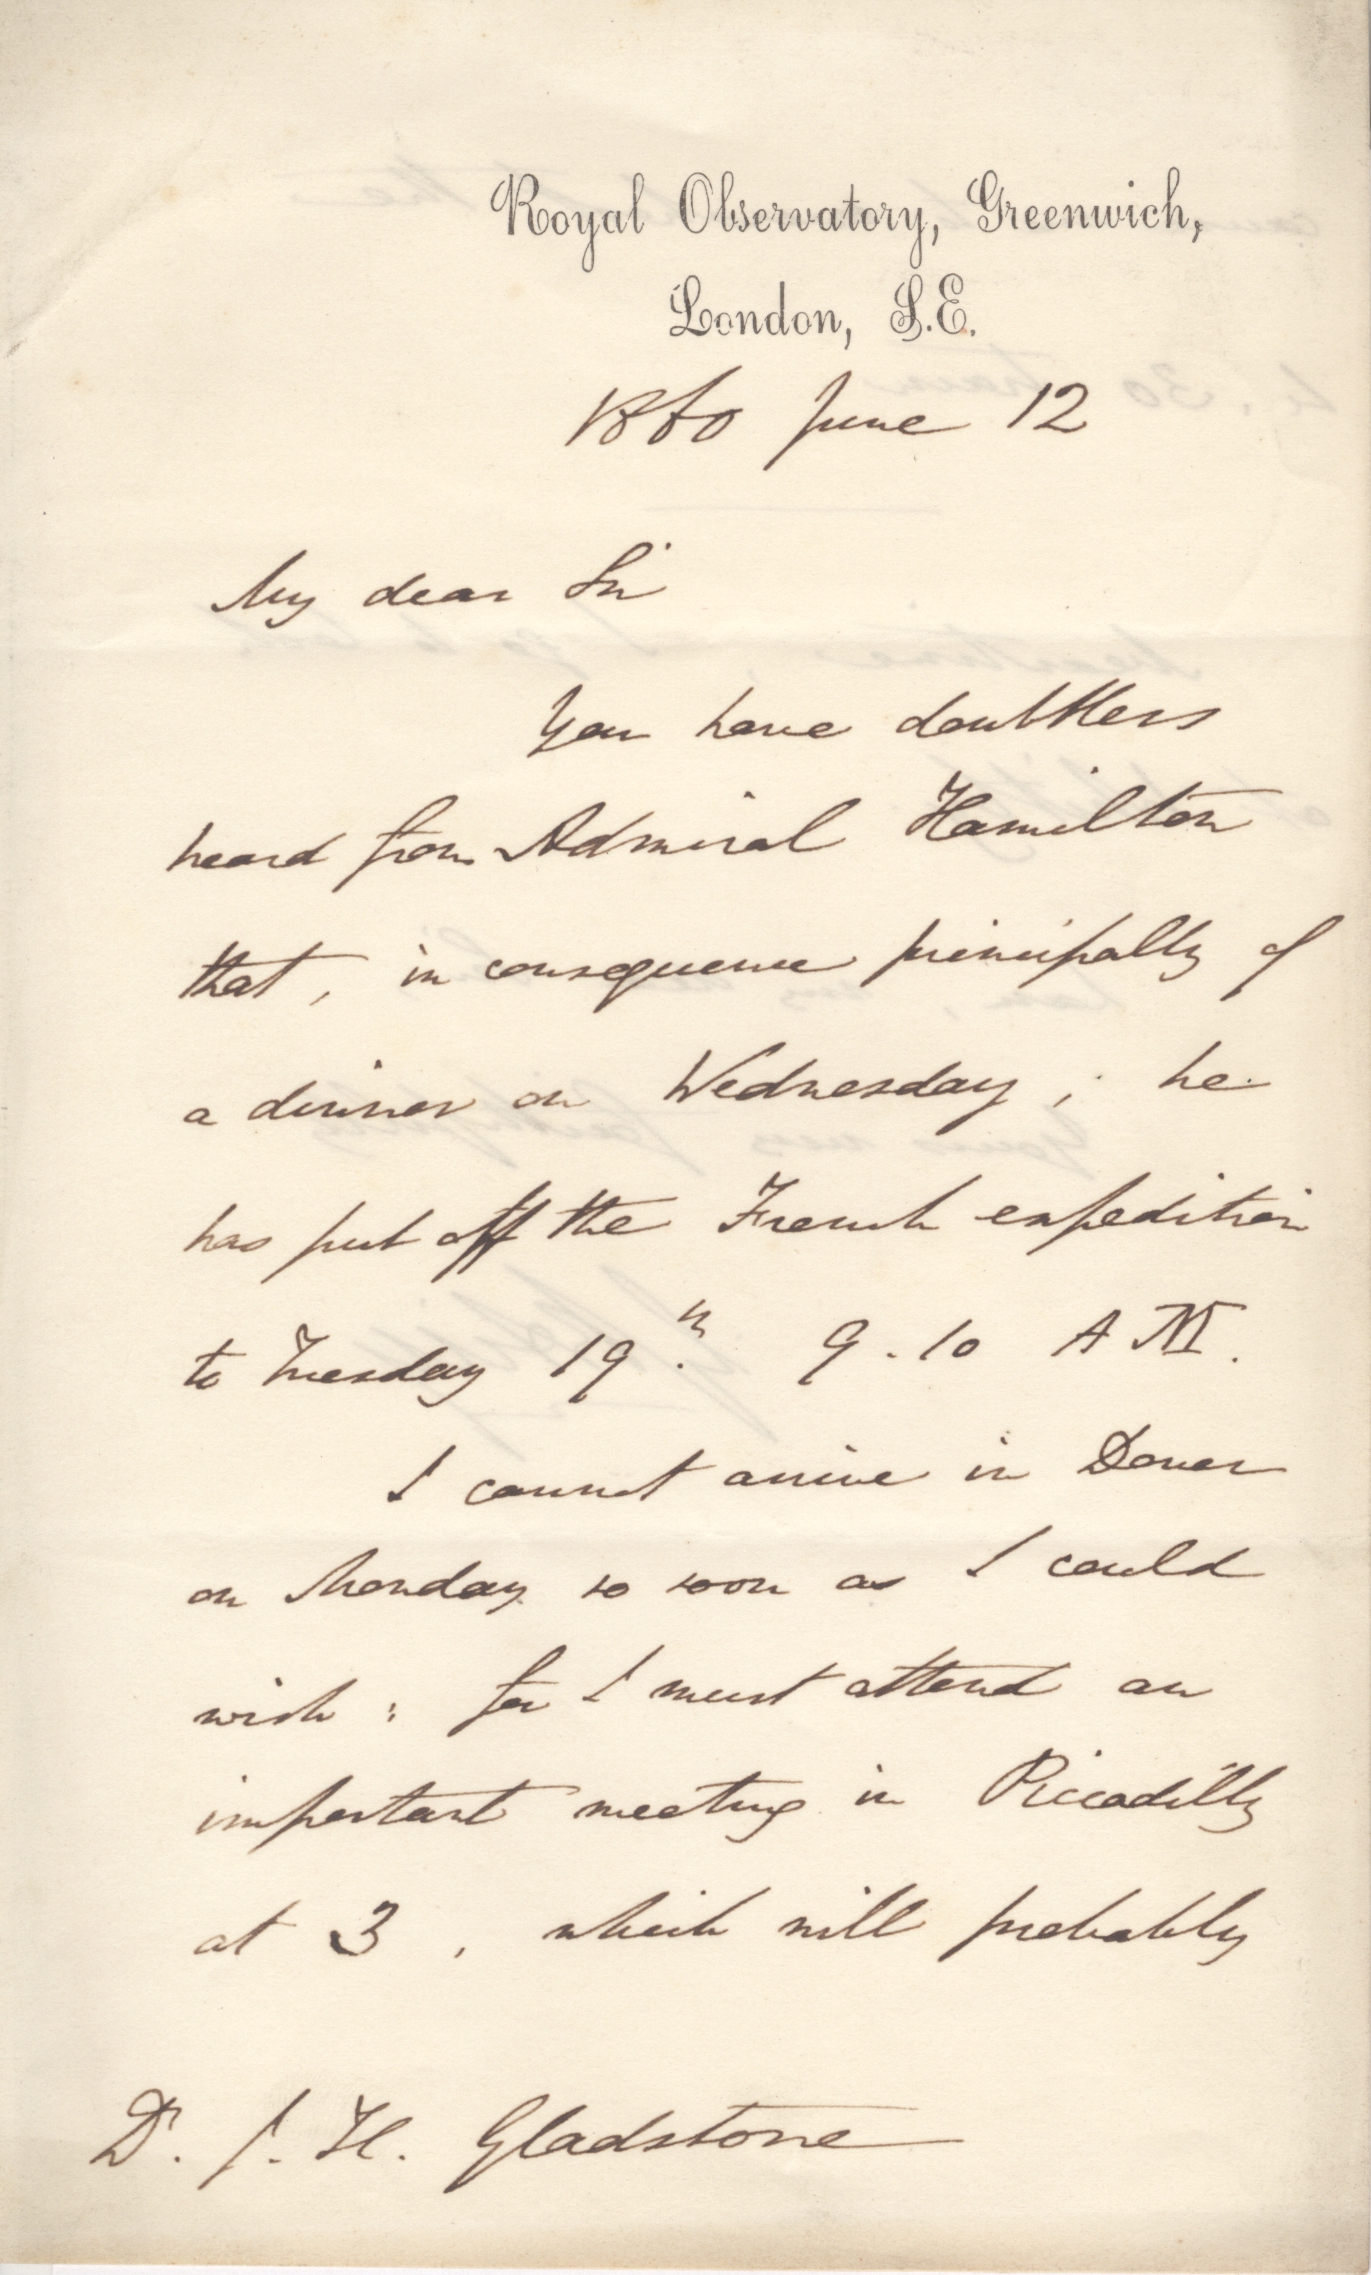 Royal Observatory, Greenwich,
London, S.E.
1860 June 12
My dear Sir
You have doubtless
heard from Admiral Hamilton
that, in consequence principally of
a dinner on Wednesday, he
has put off the French expedition
to Tuesday 19th. 9.10 A M.
I cannot arrive in Dover
on Monday so soon as I could
wish: for I must attend an
important meeting in Piccadilly
at 3, which will probably
Dr. J. H. Gladstone